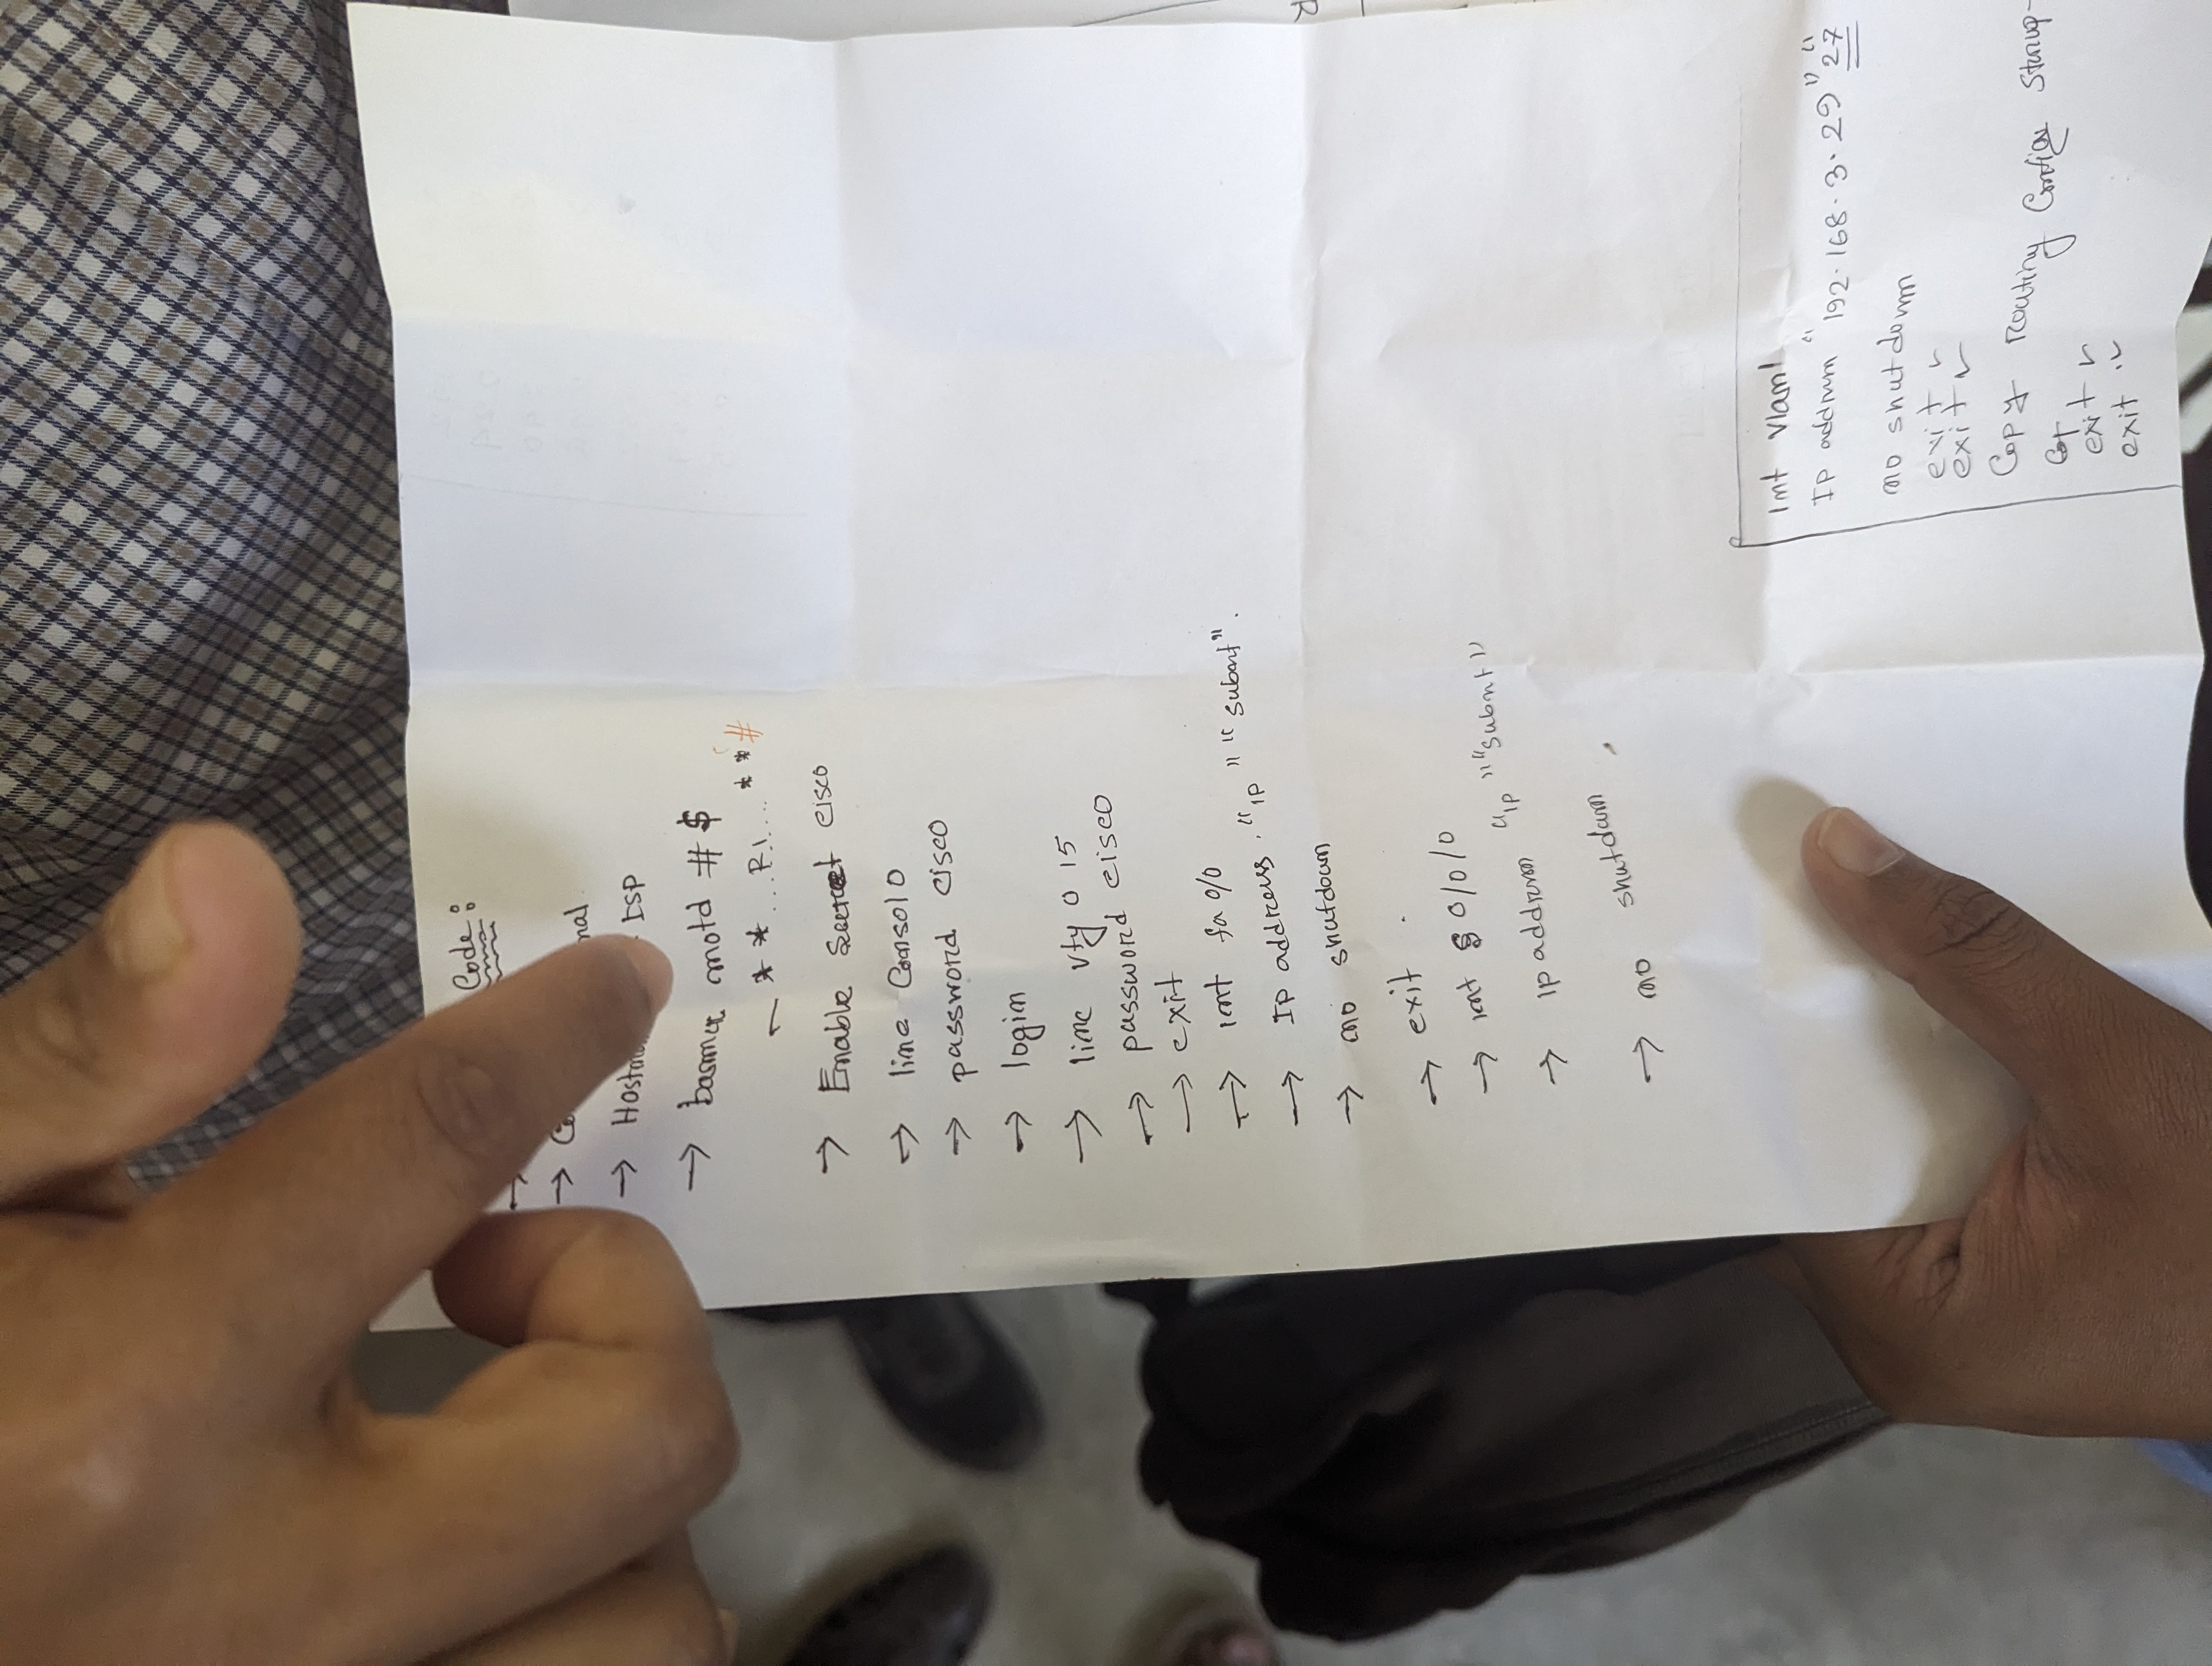 Code:
→
→
→ ISP
→ banner motd # $
** ... R1.... ** #
→ Enable Secret cisco
→ line Consol 0
→ password cisco
→ login
→ line vty 0 15
→ password cisco
→ exit
→ int fa 0/0
→ Ip address "ip" "subnt".
→ no shutdown
→ exit.
→ int S 0/0/0
→ ip addrnn "ip" "subnt"
→ no shutdown
Int Vlan1
Ip addrnn "192.168.3.29" "27
no shutdown
exit ✓
exit ✓
Copy routing Config Startup-
exit ✓
exit ✓